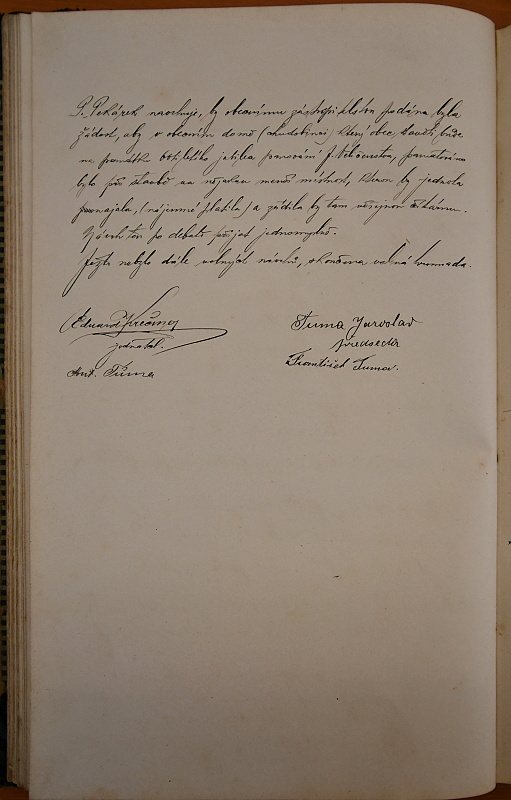 P. Pekárek navrhuje, by obecnímu zastupitelstvu podána byla
žádost, aby v obecním domě (chudobinci) který obec stavěti bude
na památku 60ti letého jubilea panování J. Veličenstva, pamatováno
bylo při stavbě na nějakou menší místnost, kterou by jednota
pronajala, (nájemné platila) a zřídila by tam veřejnou čítárnu.
Návrh ten po debatě přijat jednomyslně.
Ježto nebylo dále volných návrhů, skončena valná hromada.
Eduard
jednatel.
Ant. Tůma
Tuma Jaroslav
předseda
František Tuma.